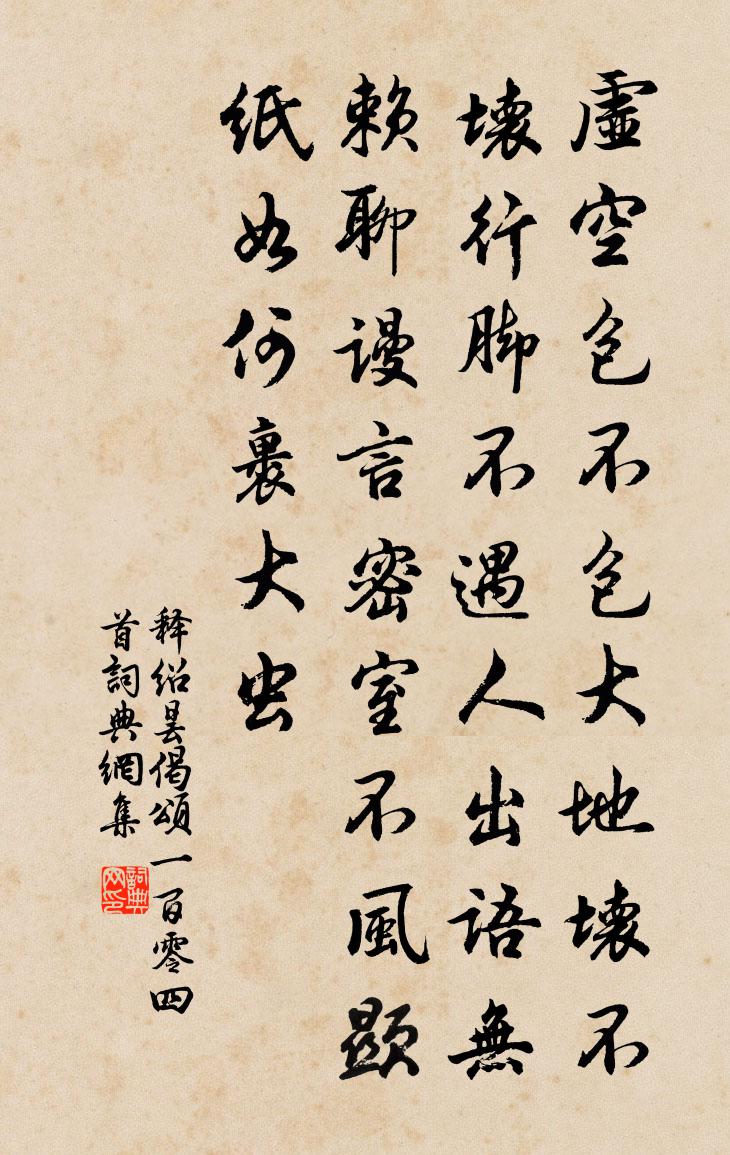 虛空包不包大地壞不
壞行脚不遇人出語無
賴聊謾言密室不風顯
紙如何裹大虫
释紹曇偈頌一百零四
首詞典網集
詞典网印